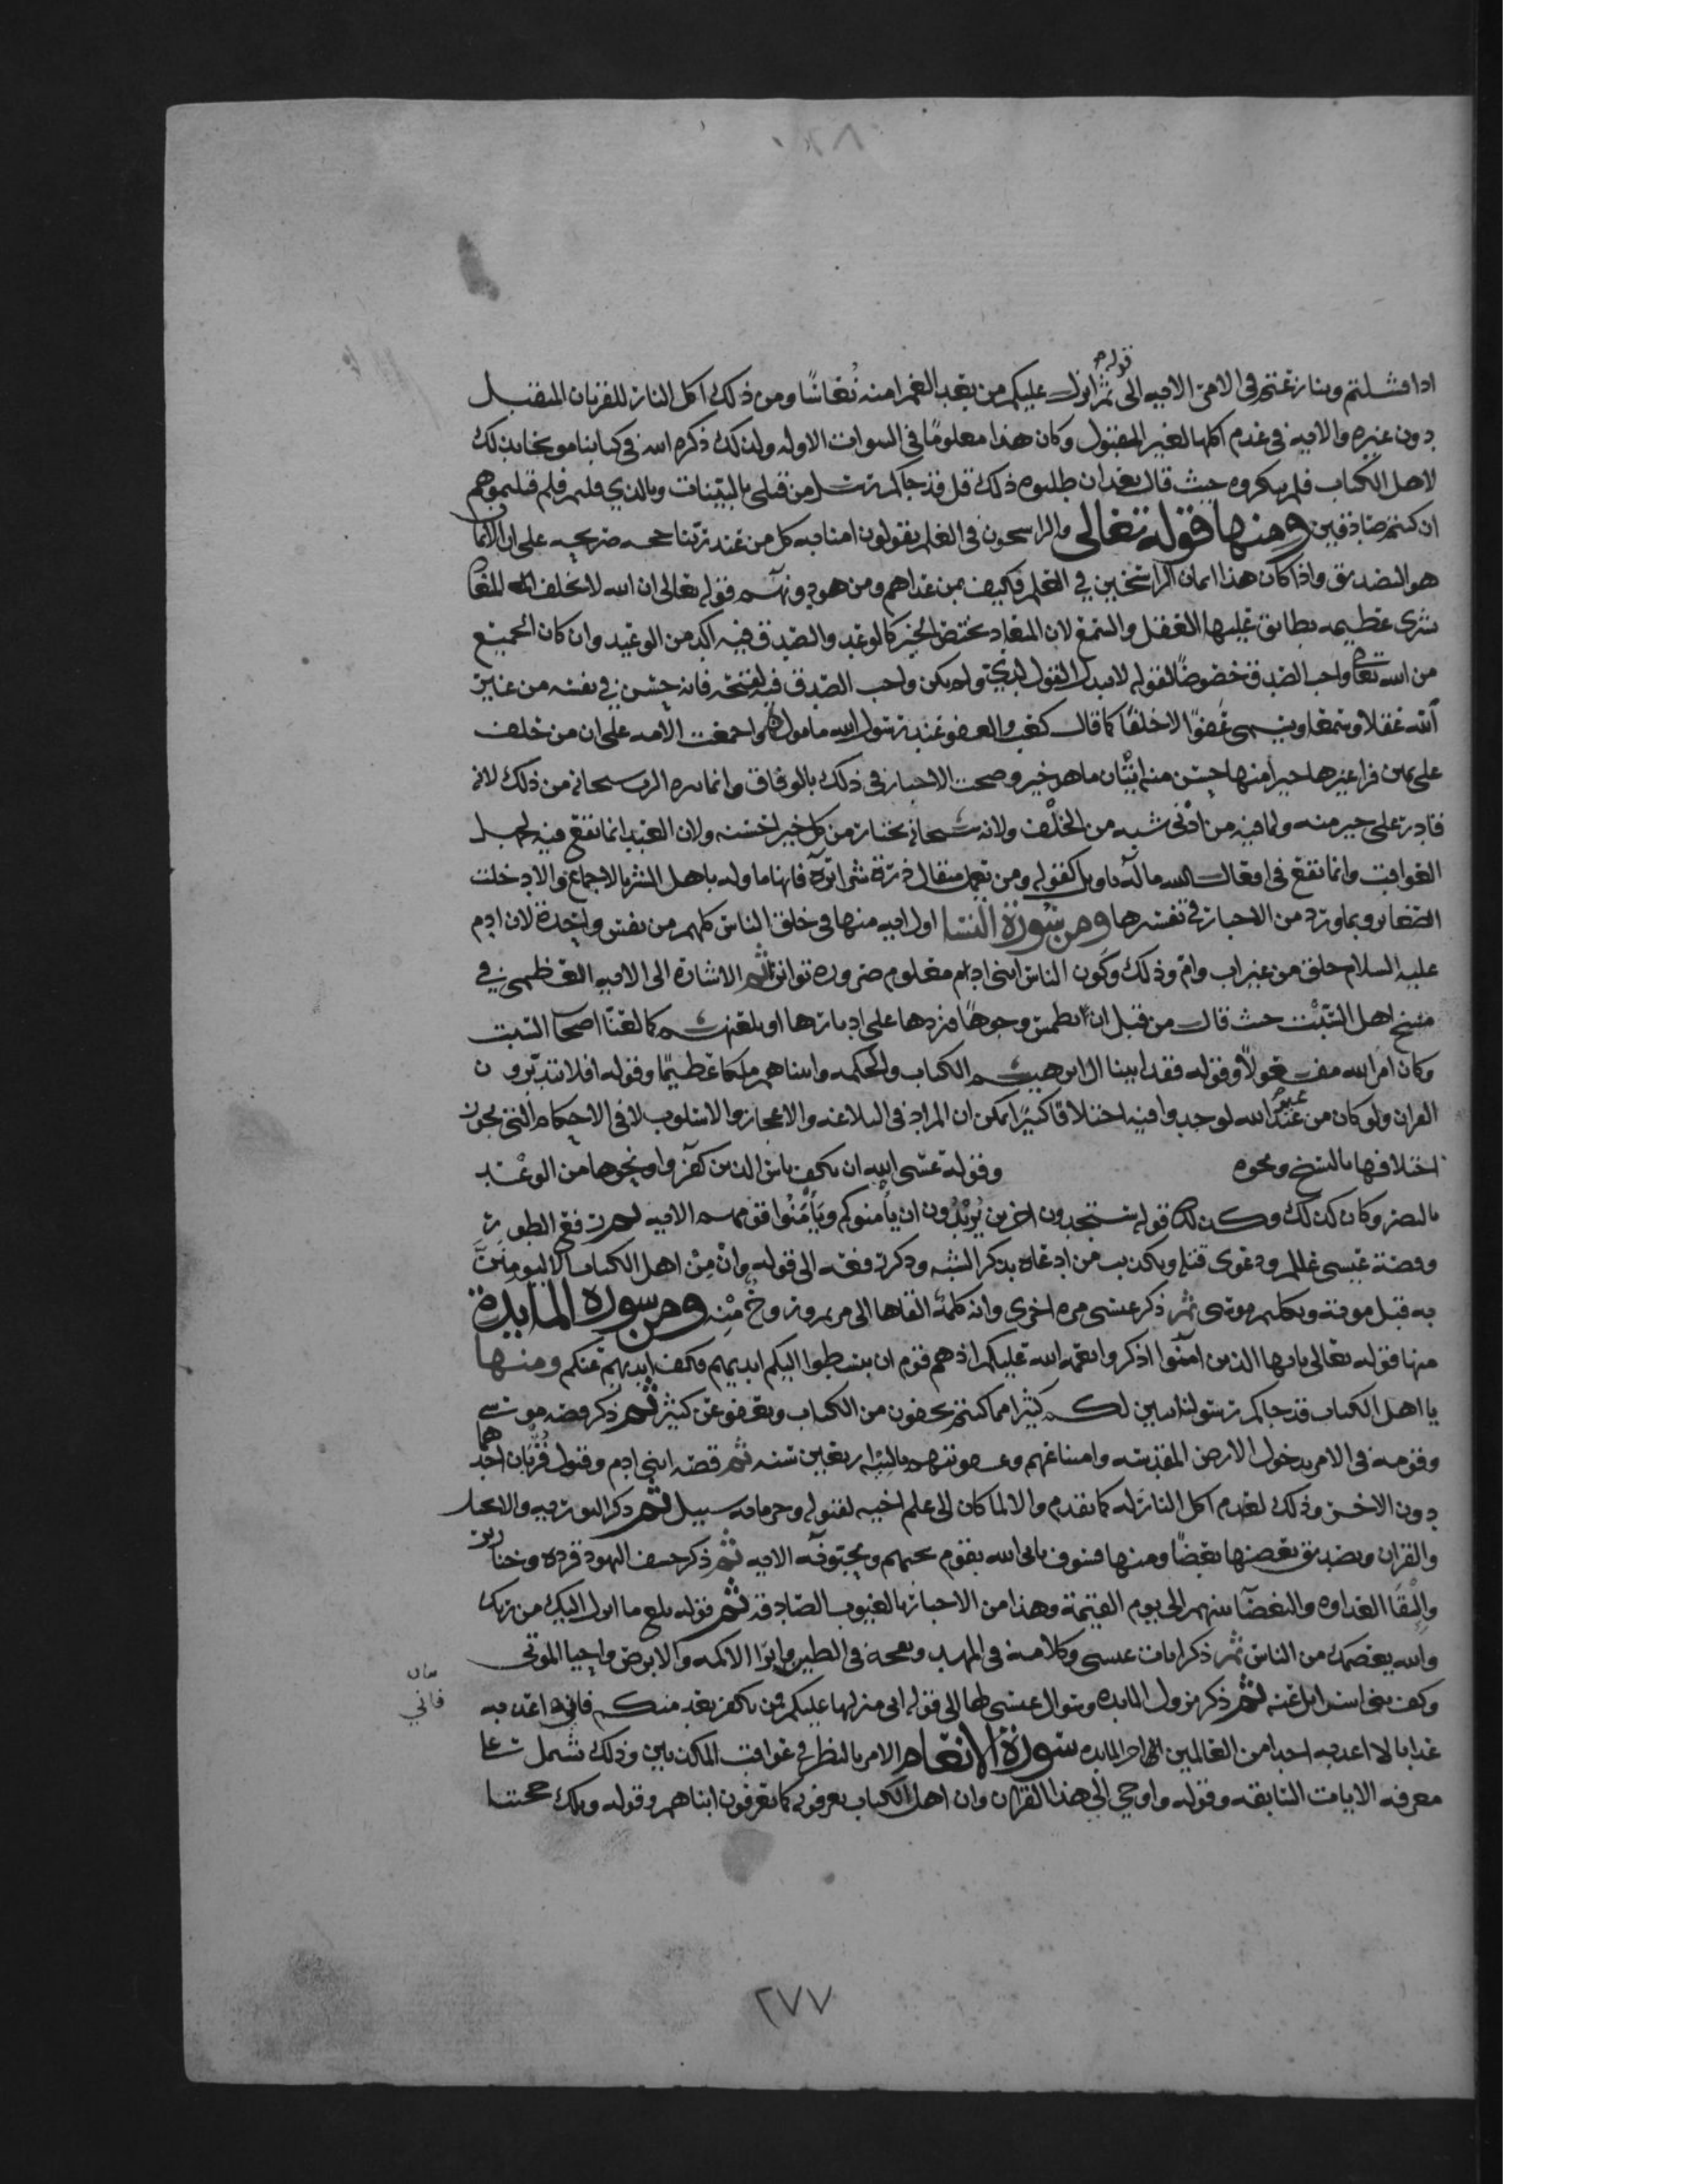 قوله
اذا فشلتم وتنازعتم في الامر الايه الى ثم انزل عليكم من بعد الغم امنة نعاسًا ومن ذلك اكل النار للقربان المتقبل
دون غيره والايه في عدم اكلها لغير المقبول وكان هذا معلومًا في النبوات الاوله ولذلك ذكره الله في كتابنا مو بخا بذلك
لاهل الكتاب فلم ينكروه حيث قال بعد ان طلبوه ذلك قل قد جاكم رسل من قبلي بالبينات وبالذي قلتم فلم قتلتموهم
ان كنتم صادقين ومنها قوله تعالى والراسخون في العلم يقولون امنا به كل من عند ربنا حجه صريحه على ان الايمان
هو التصديق واذا كان هذا ايمان الراسخين في العلم فكيف بمن عداهم ومن هو دونهم قوله تعالى ان الله لا يخلف الميعاد
بشرى عظيمه تطابق عليها العقل والسمع لان الميعاد يختص الخير كالوعد والصدق فيه اكد من الوعيد وان كان الجميع
من الله تعالى واجب الصدق خصوصًا لقوله لا يبدل القول لدي ولم يكن واجب الصدق فيه لقبحه فانه حسن في نفسه من غاير
الله عقلا وسمعا ويسمى عفوًا لا خلفًا كما قال كعب والعفو عند رسول الله مامول واجمعت الامه على ان من حلف
على يمين فراى غيرها خيرا منها حسن منه اتيان ما هو خير وصحت الاخبار في ذلك بالوفاق وانما نزه الرب سبحانه من ذلك لانه
قادر على خير منه ولما فيه من ادنى شبه من الخلف ولانه سبحانه يختار من كل خير احسنه ولان العبد انما تقع فيه لجهل
العواقب وانما تقع في افعال الله ما له تاويل كقوله ومن يعمل مثقال ذرة شرا يره فانها ماوله باهل الشر بالاجماع والا دخلت
الصغاير وبما ورد من الاخبار في تفسيرها ومن سورة النسا اول ايه منها في خلق الناس كلهم من نفس واحدة لان ادم
عليه السلام خلق من غير اب وام وذلك وكون الناس ابنى ادم معلوم ضروره تواترا ثم الاشارة الى الايه العظمى في
مسخ اهل السبت حيث قال من قبل ان نطمس وجوهًا فنردها على ادبارها او نلعنهم كما لعنا اصحاب السبت
وكان امر الله مفعولًا وقوله فقد اتينا ال ابرهيم الكتاب والحكمه واتيناهم ملكا عظيمًا وقوله افلا يتدبرون
القران ولو كان من عند غير الله لوجدوا فيه اختلافًا كثيرًا يمكن ان المراد في البلاغه والاعجاز والاسلوب لا في الاحكام التي يجوز
اختلافها بالنسخ ونحوه وقوله عسى الله ان يكف باس الذين كفروا ونحوها من الوعد
بالنصر وكان كذلك وكذلك قوله ستجدون اخرين يُريْدُون ان يأمنوكم ويَأمَنُوا قومهم الايه ثم رفع الطور
وقصة عيسى عللم ودعوى قتله وتكذيب من ادعاه بذكر الشبه وذكر رفعه الى قوله وانْ مِنْ اهل الكتاب الا ليومِنَنَّ
به قبل موته وتكليم موسى ثم ذكر عيسى مره اخرى وانه كلمة القاها الى مريم وروحٌ مِنْه ومن سورة المايدة
منها قوله تعالى يايها الذين امنوا اذكروا نعمة الله عليكم اذ هم قوم ان يبسطوا اليكم ايديهم فكف ايديهم عنكم ومنها
يا اهل الكتاب قد جاكم رسولنا يبين لكم كثيرا مما كنتم تخفون من الكتاب ويعفو عن كثير ثم ذكر قصه موسى
وقومه في الامر بدخول الارض المقدسه وامتناعهم وعقوبتهم بالتيه اربعين سنه ثم قصة ابني ادم وقبول قُرْبَان احدهما
دون الاخر وذلك لعدم اكل النار له كما تقدم والا لما كان الى علم اخيه لقبوله وحرمانه سبيل ثم ذكر التوريه والانجيل
والقران وتصديق بعضها بعضًا ومنها فسوف ياتى الله بقوم يحبهم ويحبونه الايه ثم ذكر خسف اليهود قردة وخنازير
والقا العداوه والبغضا بينهم الى يوم القيمة وهذا من الاخبار بالغيوب الصادقه ثم قوله بلغ ما انزل اليك من ربك
والله يعصمك من الناس ثم ذكر ايات عيسى وكلامه في المهد ونفخه في الطير وابرا الاكمه والابرص واحيا الموتى
وكف بني اسرايل عنه ثم ذكر نزول المايده وسوال عيسى لها الى قوله انى منزلها عليكم فمن يكفر بعد منكم فاني اعذبه
فاني
عذابا لا اعذبه احدا من العالمين اخر المايده سورة الانعام الامر بالنظر في عواقب المكذبين وذلك يشمل
معرفه الايات السابقه وقوله واوحي الي هذا القران وان اهل الكتاب يعرفونه كما يعرفون ابناهم وقوله وتلك حجتنا
٢٧٧